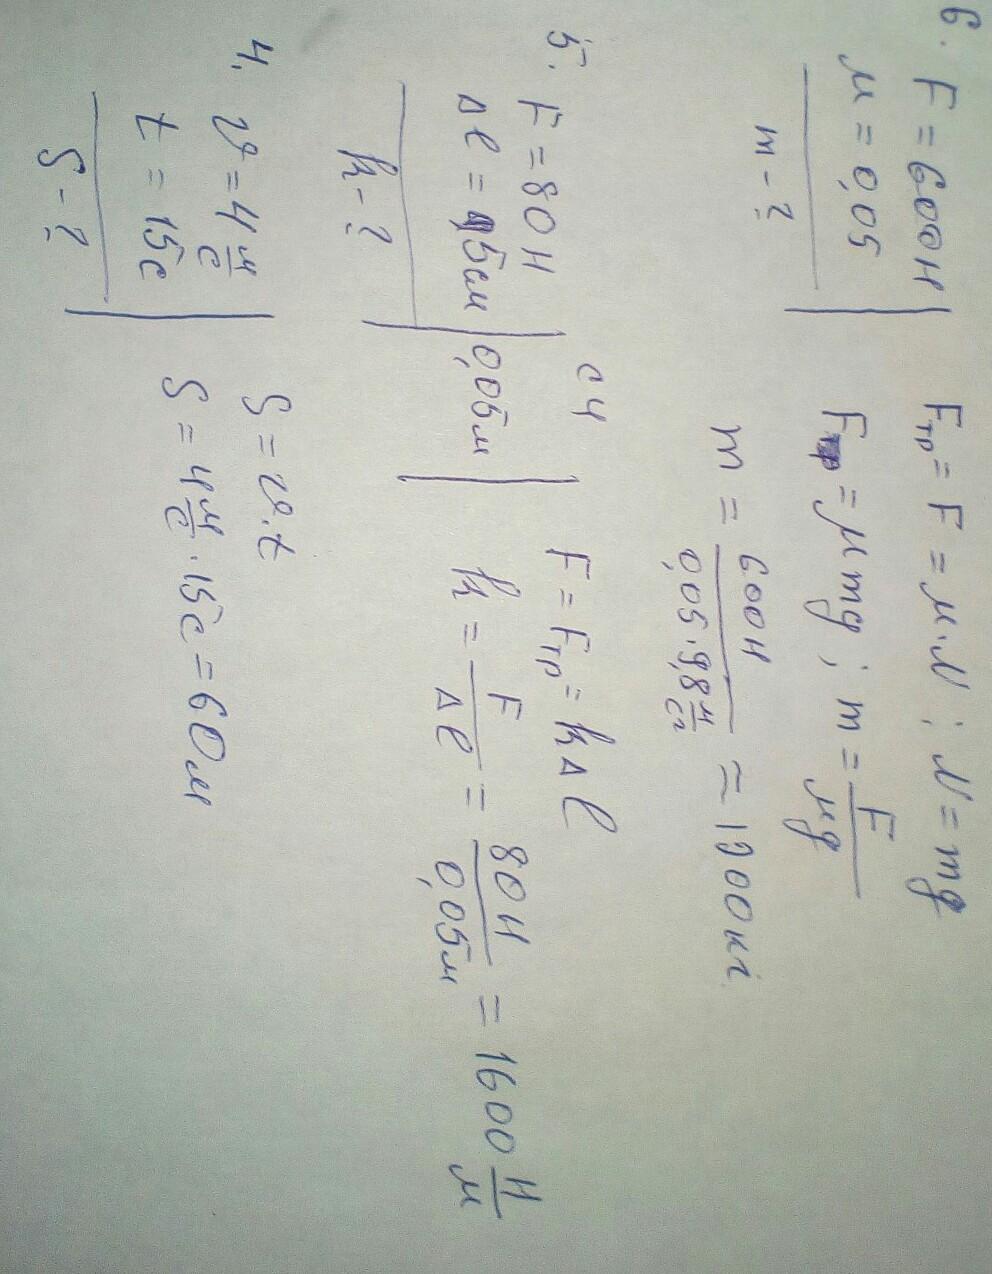 6. F = 600 Н
μ = 0,05
m - ?
Fтр = F = μ·N; N = mg
Fтр = μmg; m = F/μg
m = 600 Н / 0,05·9,8 м/с² ≈ 1200 кг
5. F = 80 Н
Δl = 5 см
k - ?
СИ
0,05 м
F = Fтр = kΔl
k = F/Δl = 80 Н/0,05 м = 1600 Н/м
4. υ = 4 м/с
t = 15 с
S - ?
S = υ·t
S = 4 м/с · 15 с = 60 м